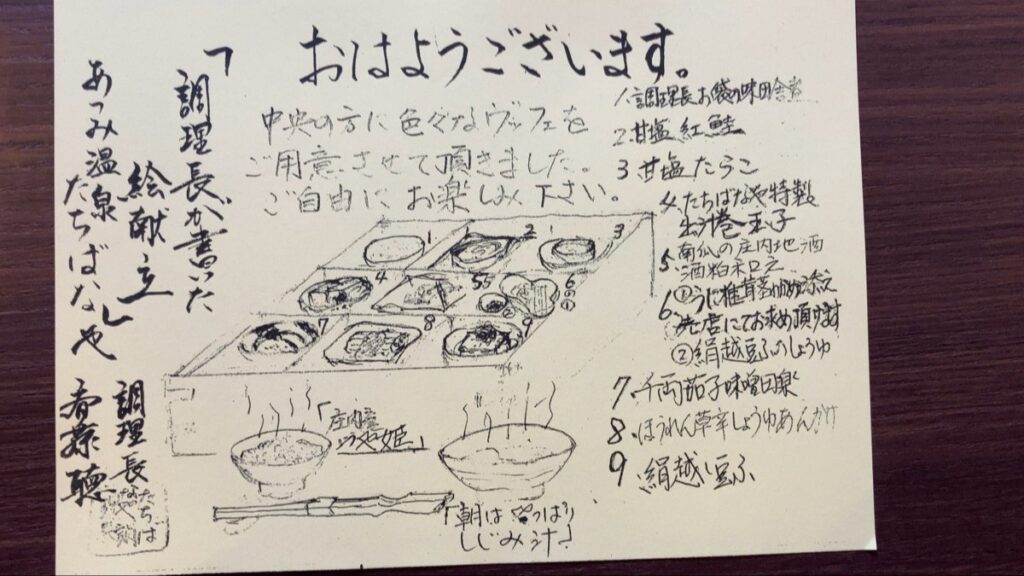 おはようございます。
「調理長が書いた
絵献立」
あつみ温泉
たちばなや
調理長
斎藤 聰
中央の方に色々なヴッフェを
ご用意させて頂きました。
ご自由にお楽しみ下さい。
1.調理長お袋の味田舎煮
2.甘塩紅鮭
3 甘塩たらこ
4.たちばなや特製
出汁巻玉子
5.南瓜の庄内地酒
酒粕
6.①うに椎茸
売店にてお求め頂けます
②絹越豆ふのしょうゆ
7.千両茄子味噌田楽
8.ほうれん草辛しょうゆあんかけ
9 絹越し豆ふ
1 2 1 3
4 5 6
7 8 9
「庄内産
つや姫」
「朝はやっぱり
しじみ汁」